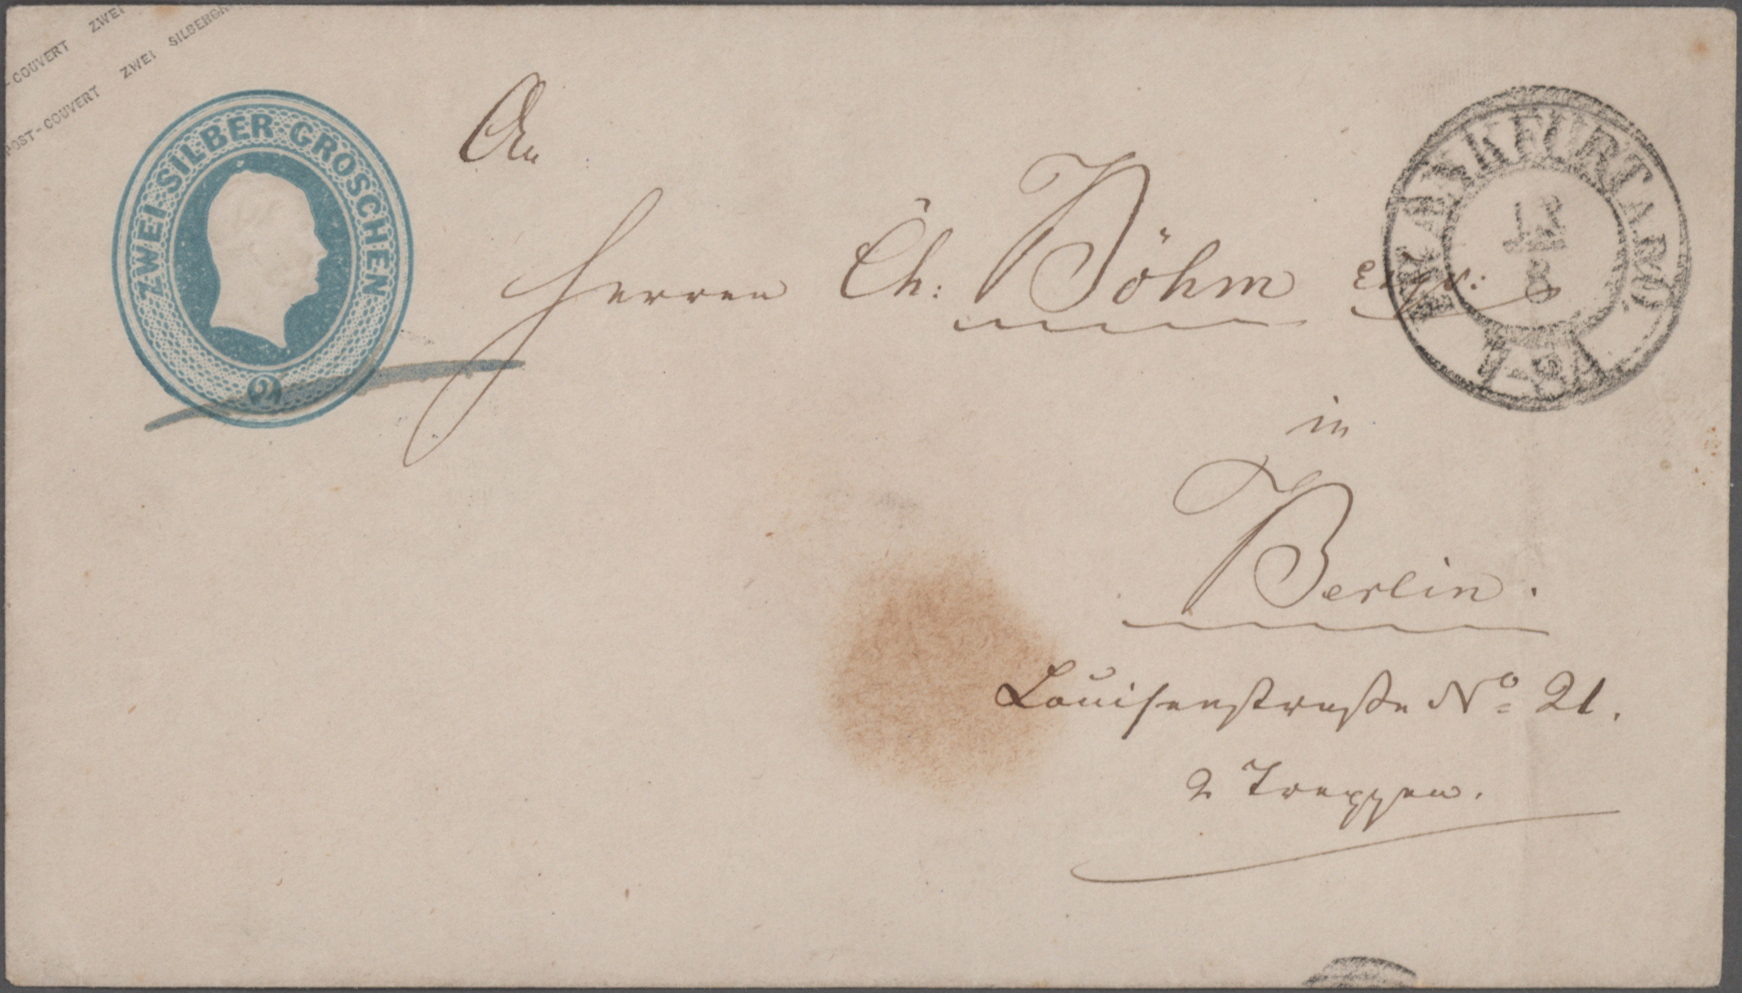 -COUVERT ZWEI
POST-COUVERT ZWEI SILBERGR
ZWEI SILBER GROSCHEN
2
FRANKFURT A.B.O.
13
8
7-8 A
An
Herren Ch: Böhm
in
Berlin.
Louisenstraße No 21.
2 Treppen.